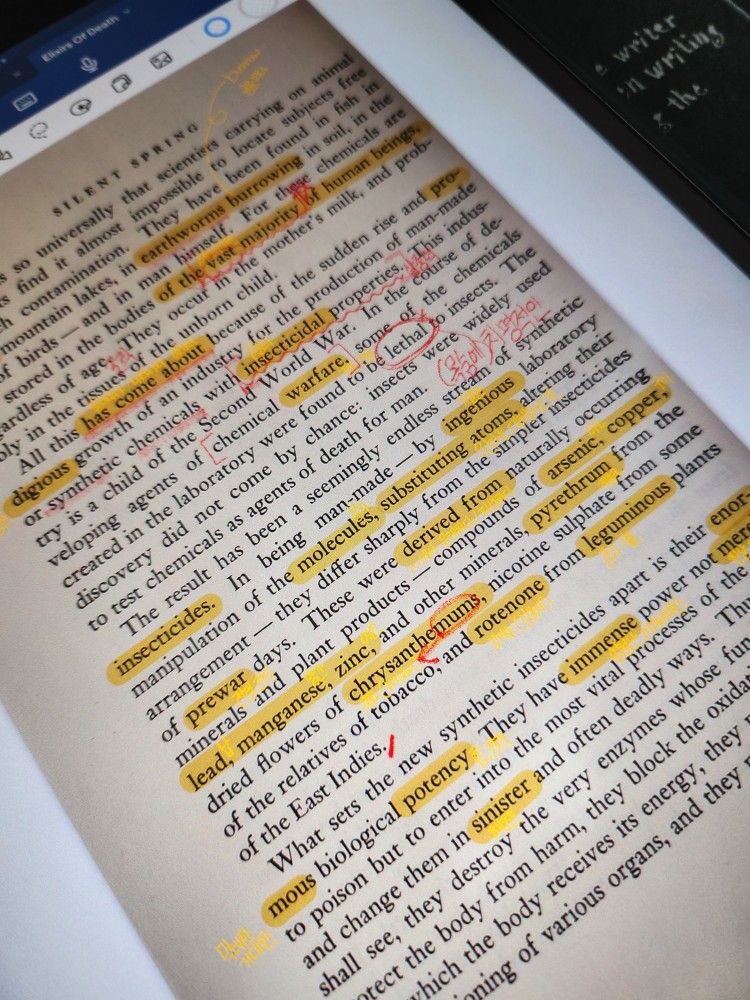 Elixirs Of Death
e writer
in writing
g the
SILENT SPRING
s so universally that scientists carrying on animal
s find it almost impossible to locate subjects free
h contamination. They have been found in fish in
mountain lakes, in earthworms burrowing in soil, in the
of birds — and in man himself. For these chemicals are
stored in the bodies of the vast majority of human beings,
ardless of age. They occur in the mother's milk, and prob-
bly in the tissues of the unborn child.
All this has come about because of the sudden rise and pro-
digious growth of an industry for the production of man-made
or synthetic chemicals with insecticidal properties. This indus-
try is a child of the Second World War. In the course of de-
veloping agents of chemical warfare, some of the chemicals
created in the laboratory were found to be lethal to insects. The
discovery did not come by chance: insects were widely used
to test chemicals as agents of death for man.
The result has been a seemingly endless stream of synthetic
insecticides. In being man-made — by ingenious laboratory
manipulation of the molecules, substituting atoms, altering their
arrangement — they differ sharply from the simpler insecticides
of prewar days. These were derived from naturally occurring
minerals and plant products — compounds of arsenic, copper,
lead, manganese, zinc, and other minerals, pyrethrum from the
dried flowers of chrysanthemums, nicotine sulphate from some
of the relatives of tobacco, and rotenone from leguminous plants
of the East Indies.
What sets the new synthetic insecticides apart is their enor-
mous biological potency. They have immense power not mere
to poison but to enter into the most vital processes of the
and change them in sinister and often deadly ways. Th
shall see, they destroy the very enzymes whose fun
otect the body from harm, they block the oxida
which the body receives its energy, they
ioning of various organs, and they